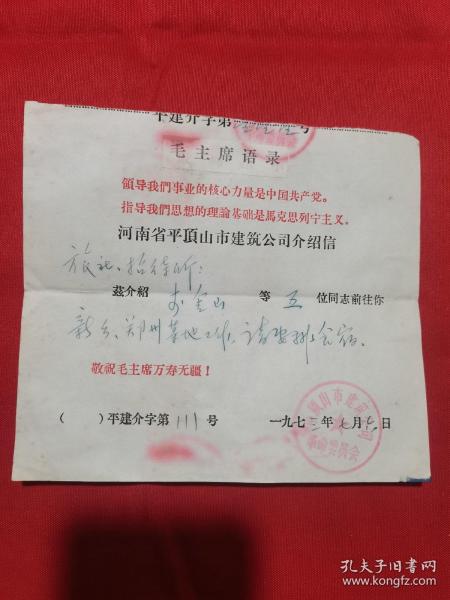 平建介字第 号
毛主席语录
領导我們事业的核心力量是中国共产党。
指导我們思想的理論基础是馬克思列宁主义。
河南省平頂山市建筑公司介绍信
旅社、招待所：
茲介紹 李金山 等 五 位同志前往你
新乡、郑州基地工作，请安排食宿。
敬祝毛主席万寿无疆！
( )平建介字第 111 号
一九七三年 月 日
平頂山市建筑公司
革命委员会
孔夫子旧书网
www.kongfz.com